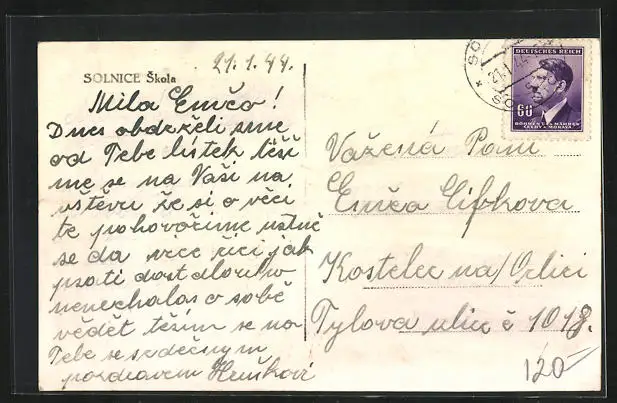 21.1.44.
SOLNICE Škola
Mila Emčo!
Dnes obdrželi sme
od Tebe lístek těší
me se na Vaši na
uštěvu že si o věci
te pohovoříme ustně
se da vice řici jak
psati dost dlouho
nenechalas o sobě
vědět těším se na
Tebe se srdečnym
pozdravem Hruškovi
DEUTSCHES REICH
60
BÖHMEN U. MÄHREN
ČECHY A MORAVA
21.1.44
Važená Pani
Emča Cifkova
Kostelec na/Orlici
Tylova ulice č 1018.
120